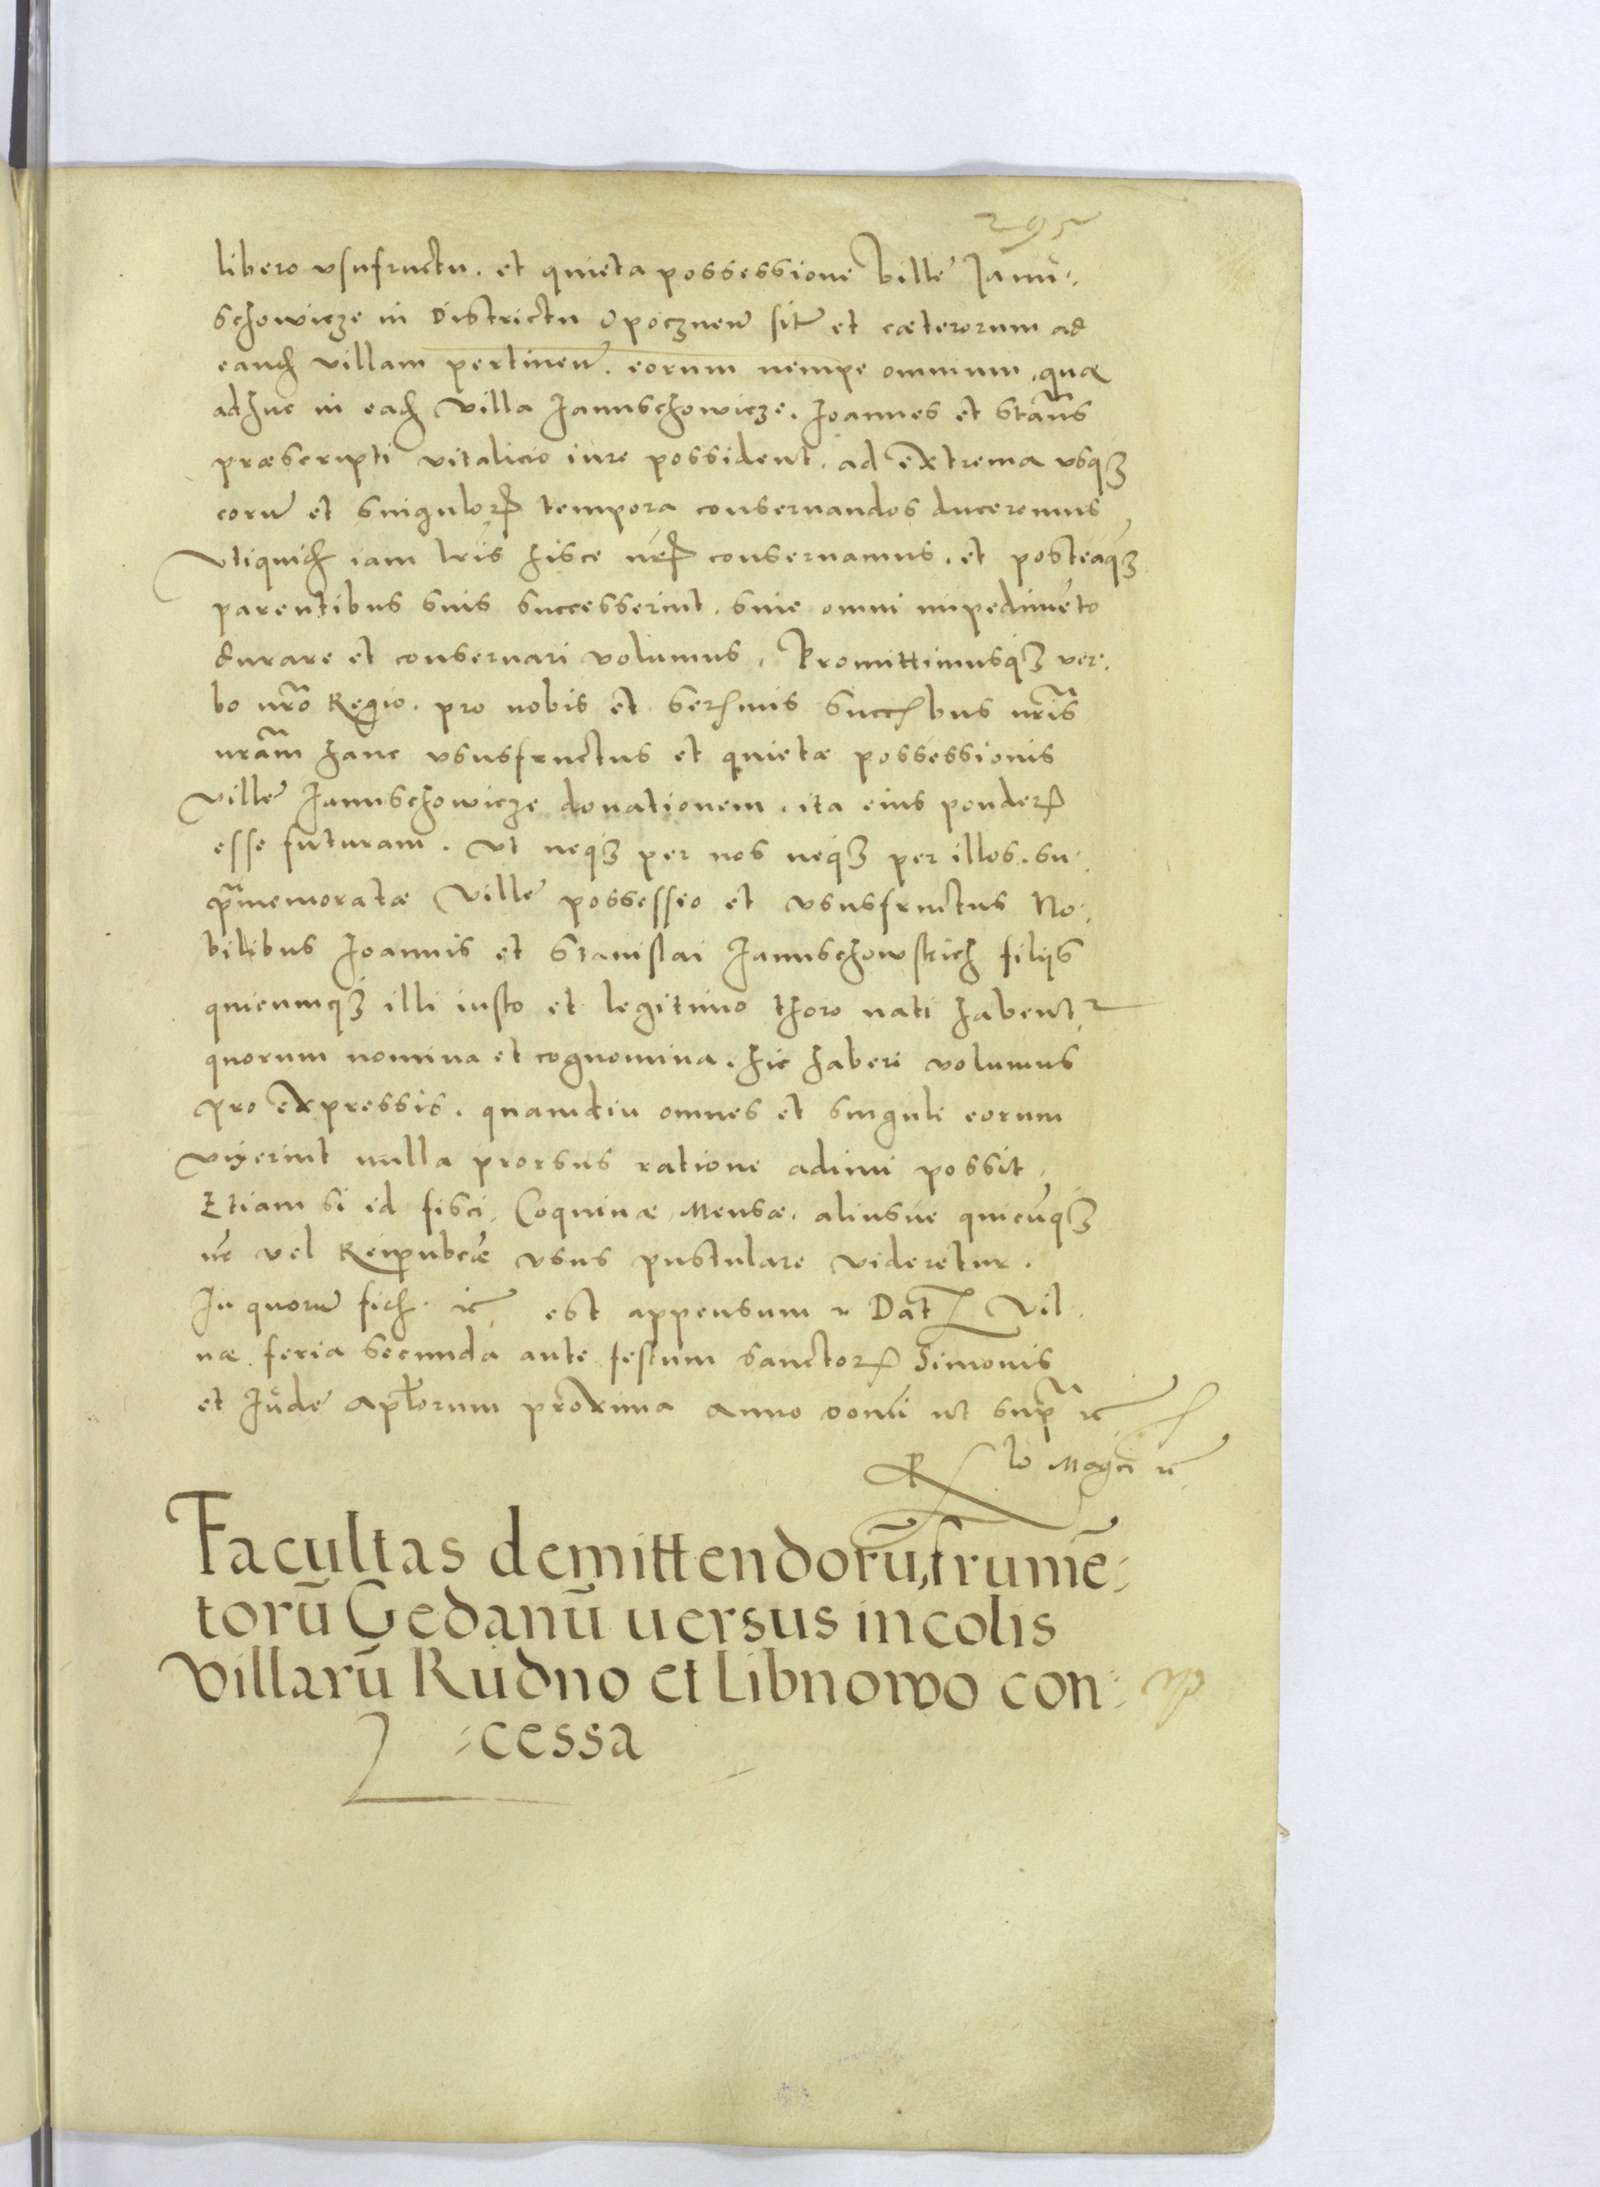 295
libero vsufructu. et quieta possessione Villę Janu-
schowicze in Districtu Opocznen̄ sitę et cæterorum ad
eandē villam pertinen̄. eorum nempe omnium, quæ
adhuc in eadē Villa Januschowicze. Joannes et Stan̄s
præscripti vitalicio iure possident. ad extrema vsqȝ
eorū et singulorꝝ tempora conseruandos duceremus
Vtiquidē iam lr̄is hisce nr̄is conseruamus. et posteaqȝ
parentibus suis successerint. sine omni impedimēto
durare et conseruari volumus, Promittimusqȝ ver-
bo nr̄o Regio. pro nobis et Serꝰmis Succꝰbus nr̄is
nr̄am hanc vsusfructus et quietæ possessionis
Villę Januschowicze donationem. ita eius ponderꝭ
esse futuram. Vt neqȝ per nos neqȝ per illos. su-
pramemoratæ Villę possessio et vsusfructus No-
bilibus Joannis et Stanislai Januschowskich filijs
quicumqȝ illi iusto et legitimo thoro nati habent~
quorum nomina et cognomina. hic haberi volumus
pro expressis. quamdiu omnes et singuli eorum
vixerint nulla prorsus ratione adimi possit.
Etiam si id fisci, Coquinæ, Mensæ. aliusue quicūqȝ
nr̄ vel Reipub̄cæ vsus pustulare videretur.
In quorū fidē. ⁊c est appensum ~ Dat̄ Vil-
næ feria Secunda ante festum Sanctorꝝ Simonis
et Judę Apl̄orum proxima Anno Domi ut supra ⁊c
R lo Magci ⁊c
Facultas demittendorū, frumē-
torū Gedanū uersus incolis
Villarū Rudno et Libnowo con-
-cessa